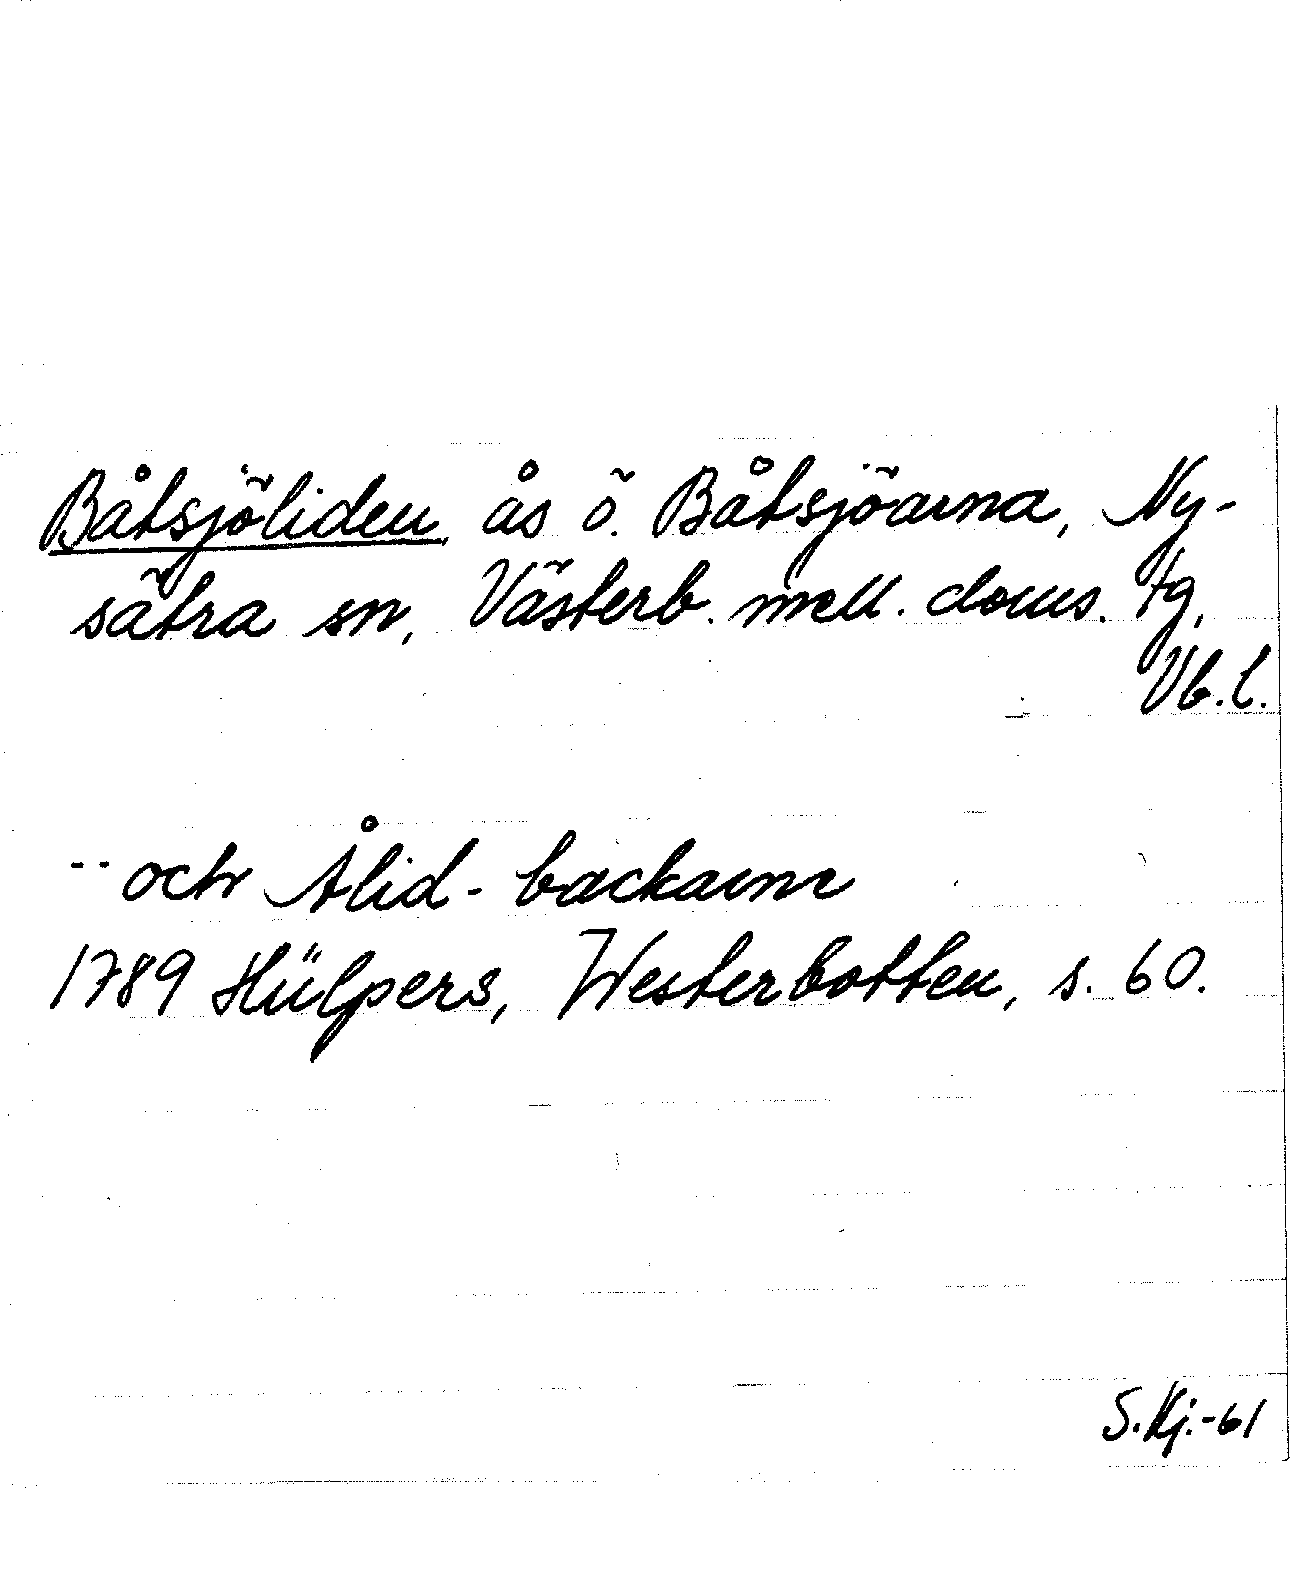 Båtsjöliden, ås ö. Båtsjöarna, Ny-
sätra sn, Västerb. mell. doms. tg,
Vb.l.
-- och Ålid-backarne
1789 Hülpers, Westerbotten, s. 60.
S.Kj.-61